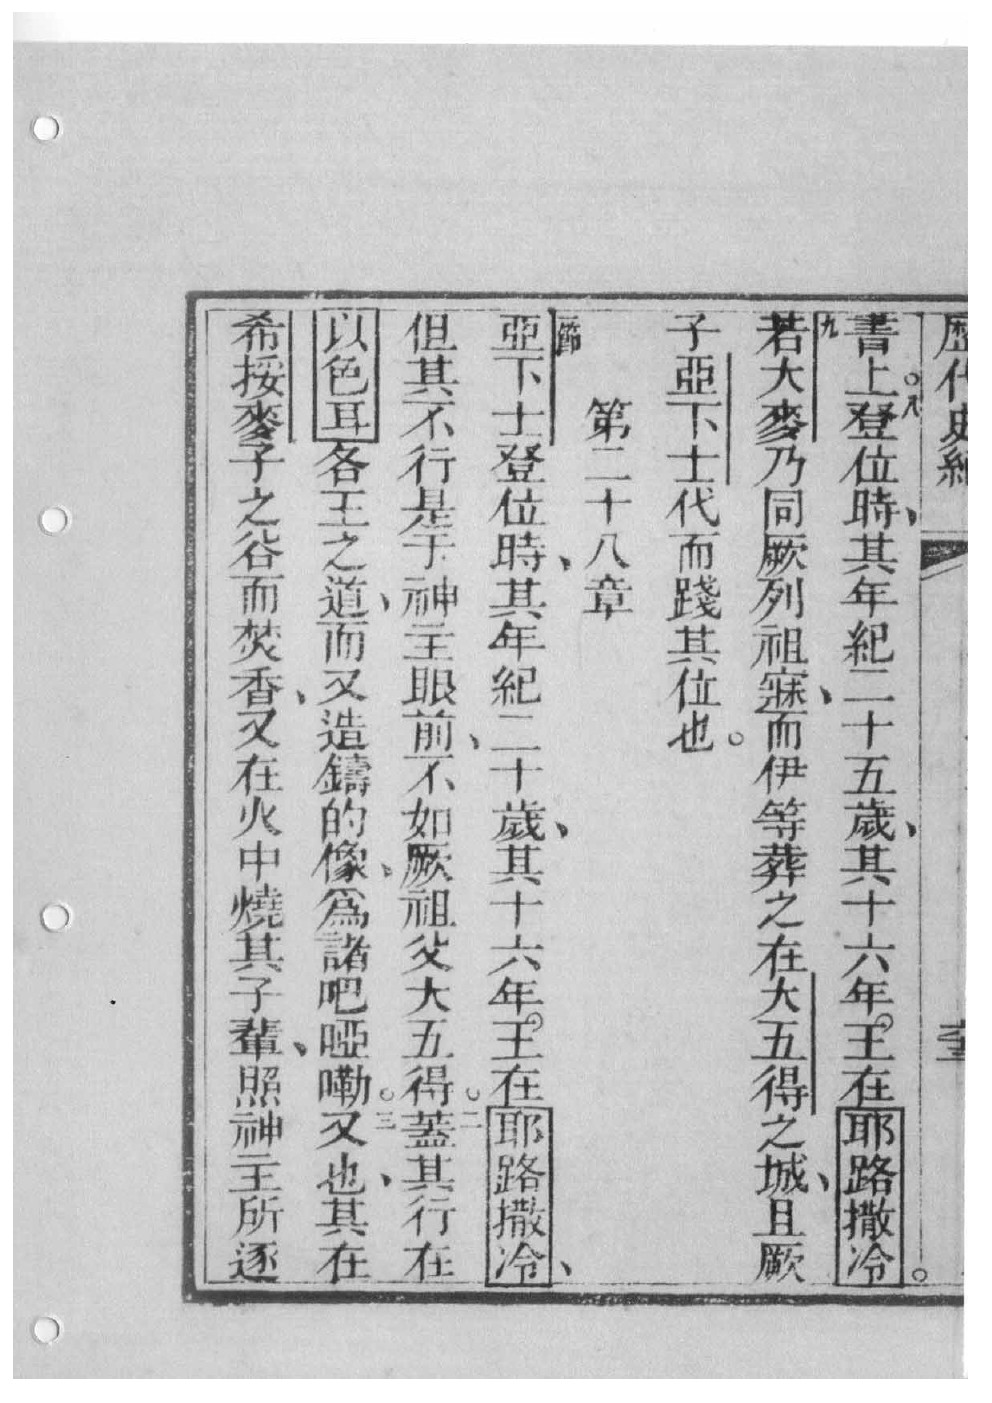 歷代史紀
書上。八登位時、其年紀二十五歲、其十六年。王在耶路撒冷。
九若大麥乃同厥列祖寐、而伊等葬之在大五得之城、且厥
子亞下士代而踐其位也。
第二十八章
一節亞下士登位時、其年紀二十歲、其十六年。王在耶路撒冷、
但其不行是于神主眼前、不如厥祖父大五得。二蓋其行在
以色耳各王之道、而又造鑄的像、爲諸吧啞嘞。三又也、其在
希挼麥子之谷而焚香、又在火中燒其子輩、照神主所逐